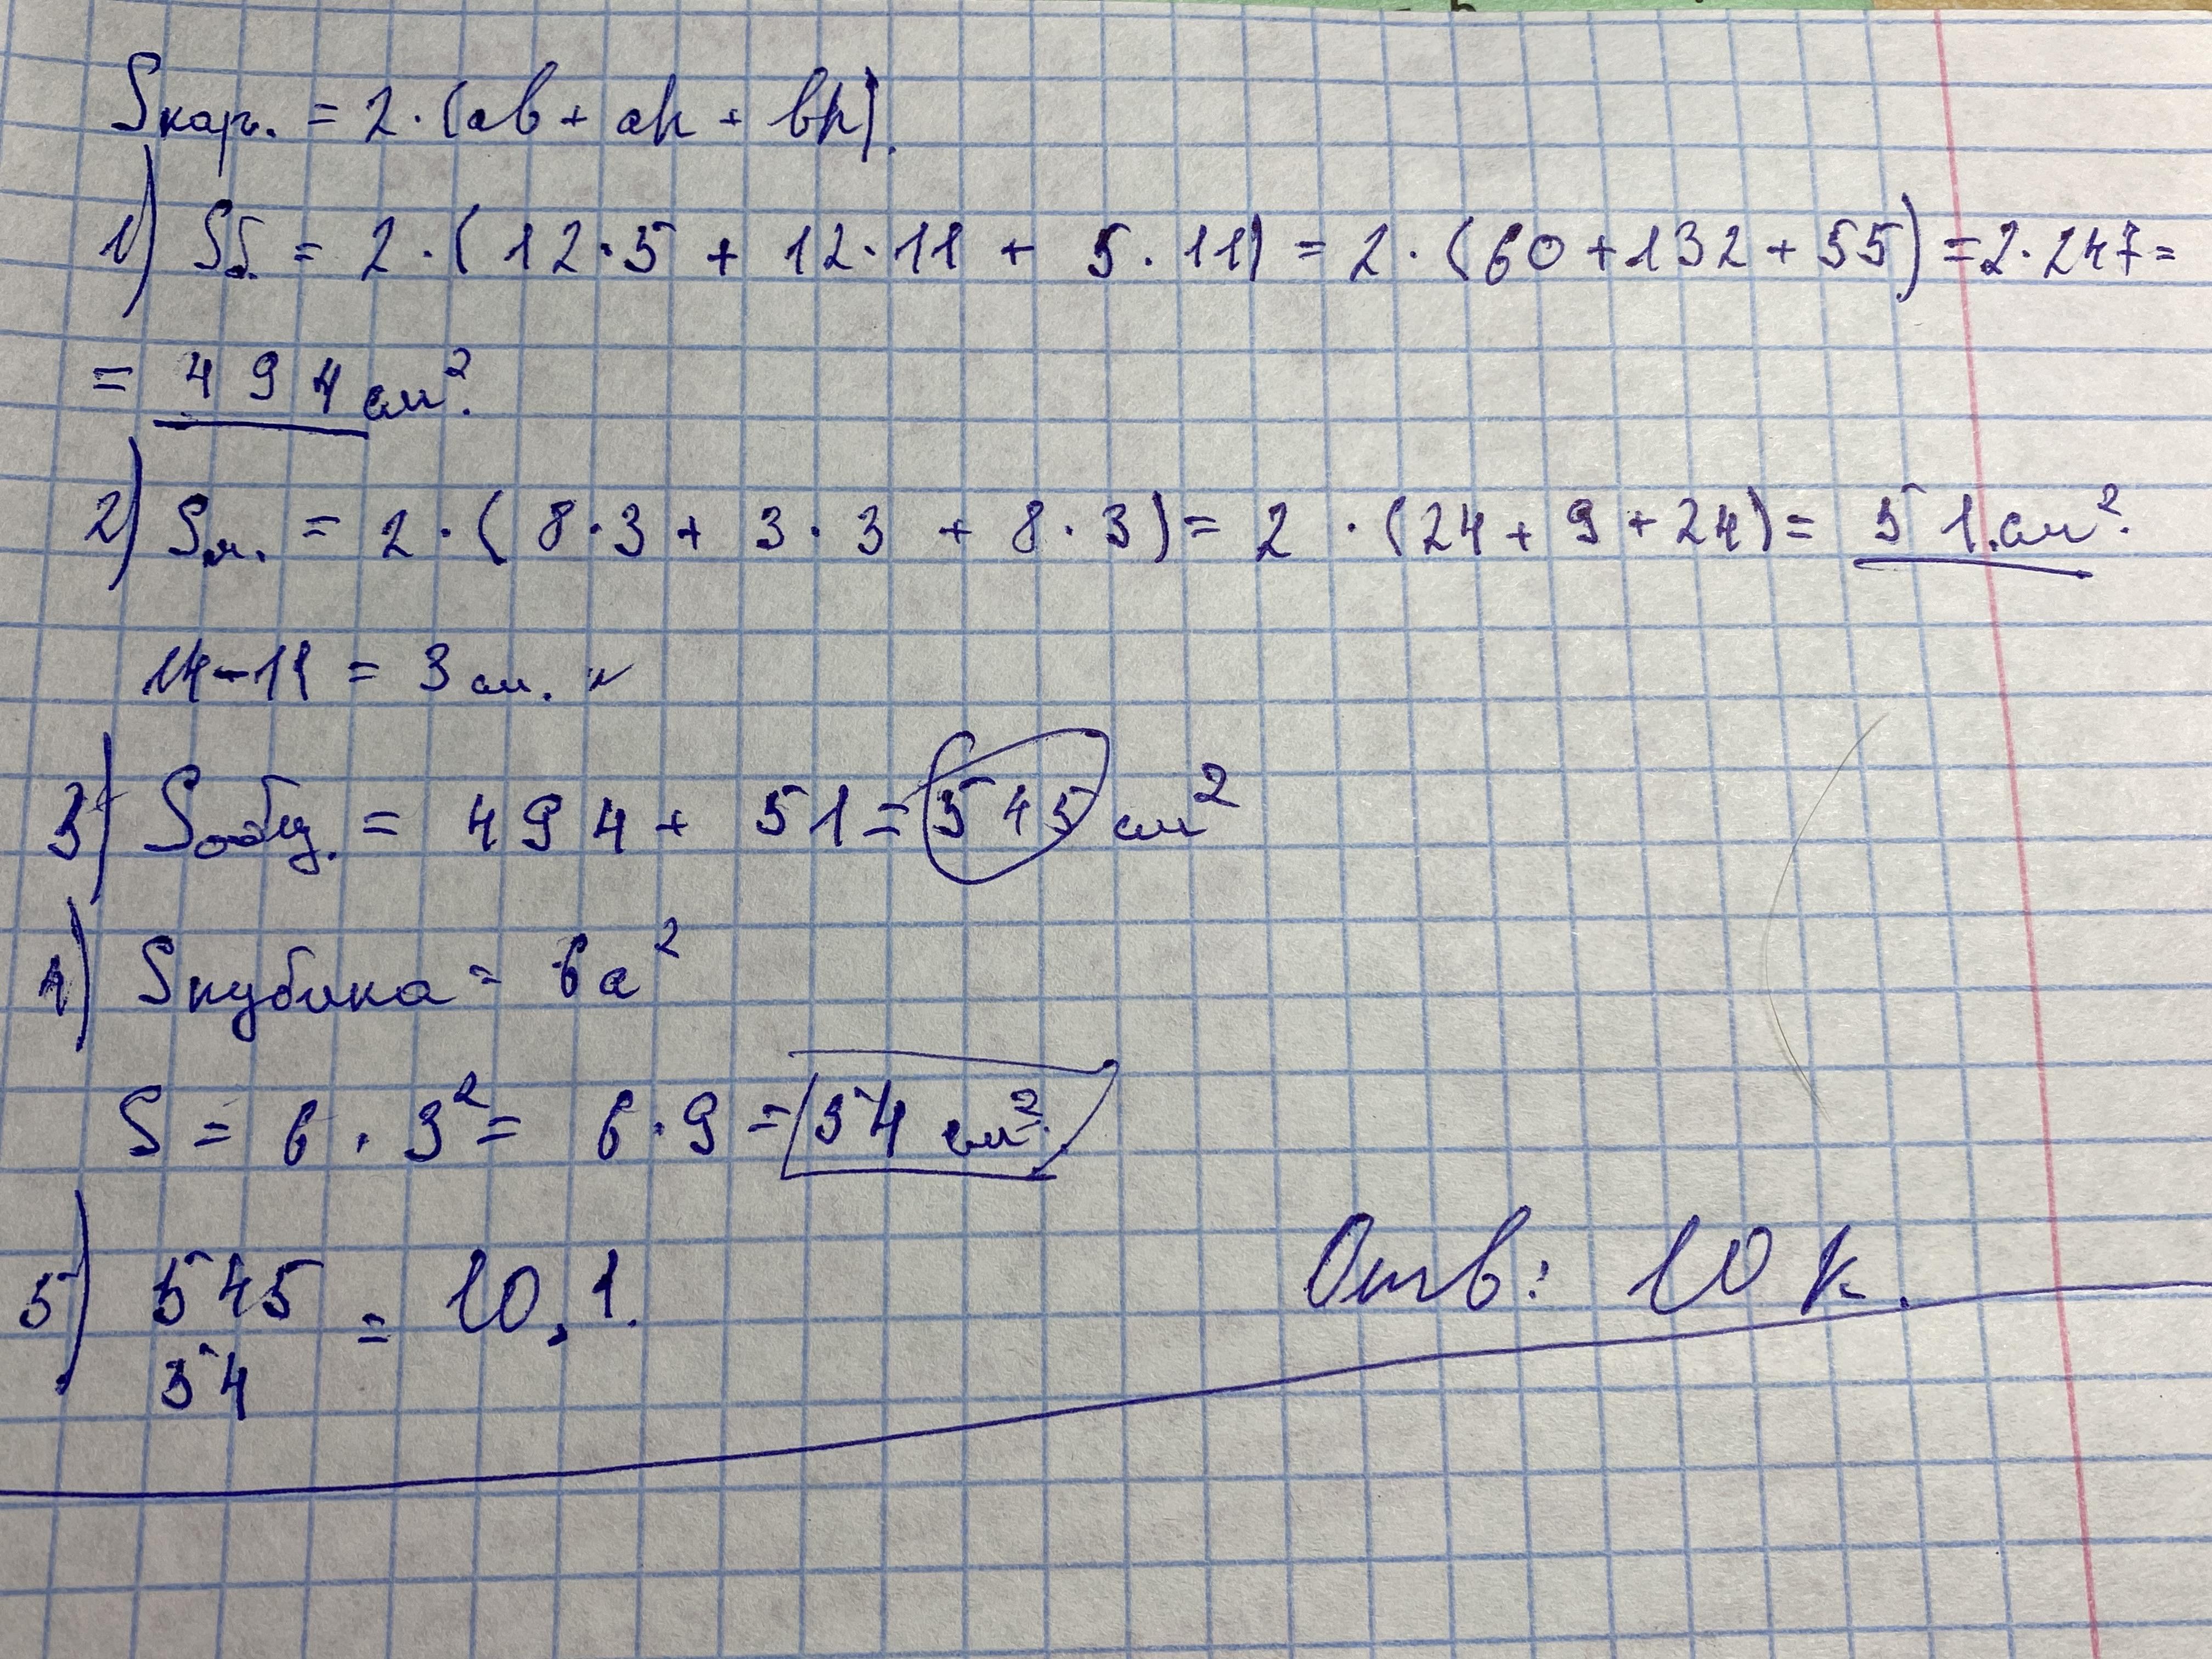 Sкар. = 2·(ab + ah + bh).
1) Sб. = 2·(12·5 + 12·11 + 5·11) = 2·(60+132+55) = 2·247 =
= 494 см².
2) Sм. = 2·(8·3 + 3·3 + 8·3) = 2·(24 + 9 + 24) = 51 см².
14-11 = 3 см.
3) Sобщ. = 494 + 51 = 545 см²
4) Sкубика = 6a²
S = 6·3² = 6·9 = 54 см².
5) 545
54 = 10,1.
Отв: 10 к.